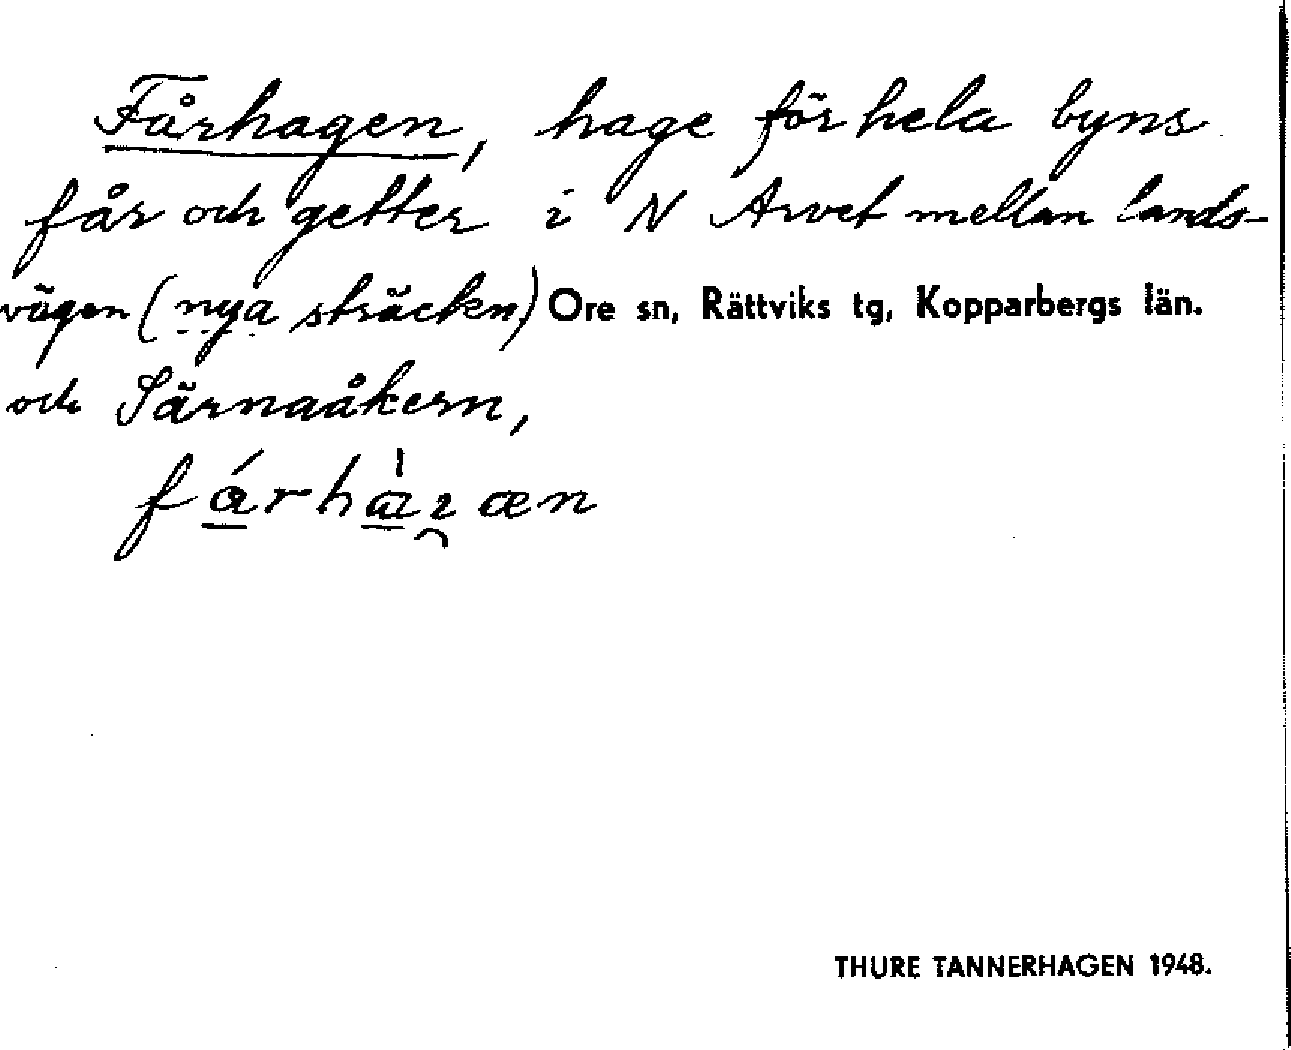 Fårhagen, hage för hela byns
får och getter i N Arvet mellan lands-
vägen (nya sträcken) Ore sn, Rättviks tg, Kopparbergs län.
och Särnaåkern,
THURE TANNERHAGEN 1948.